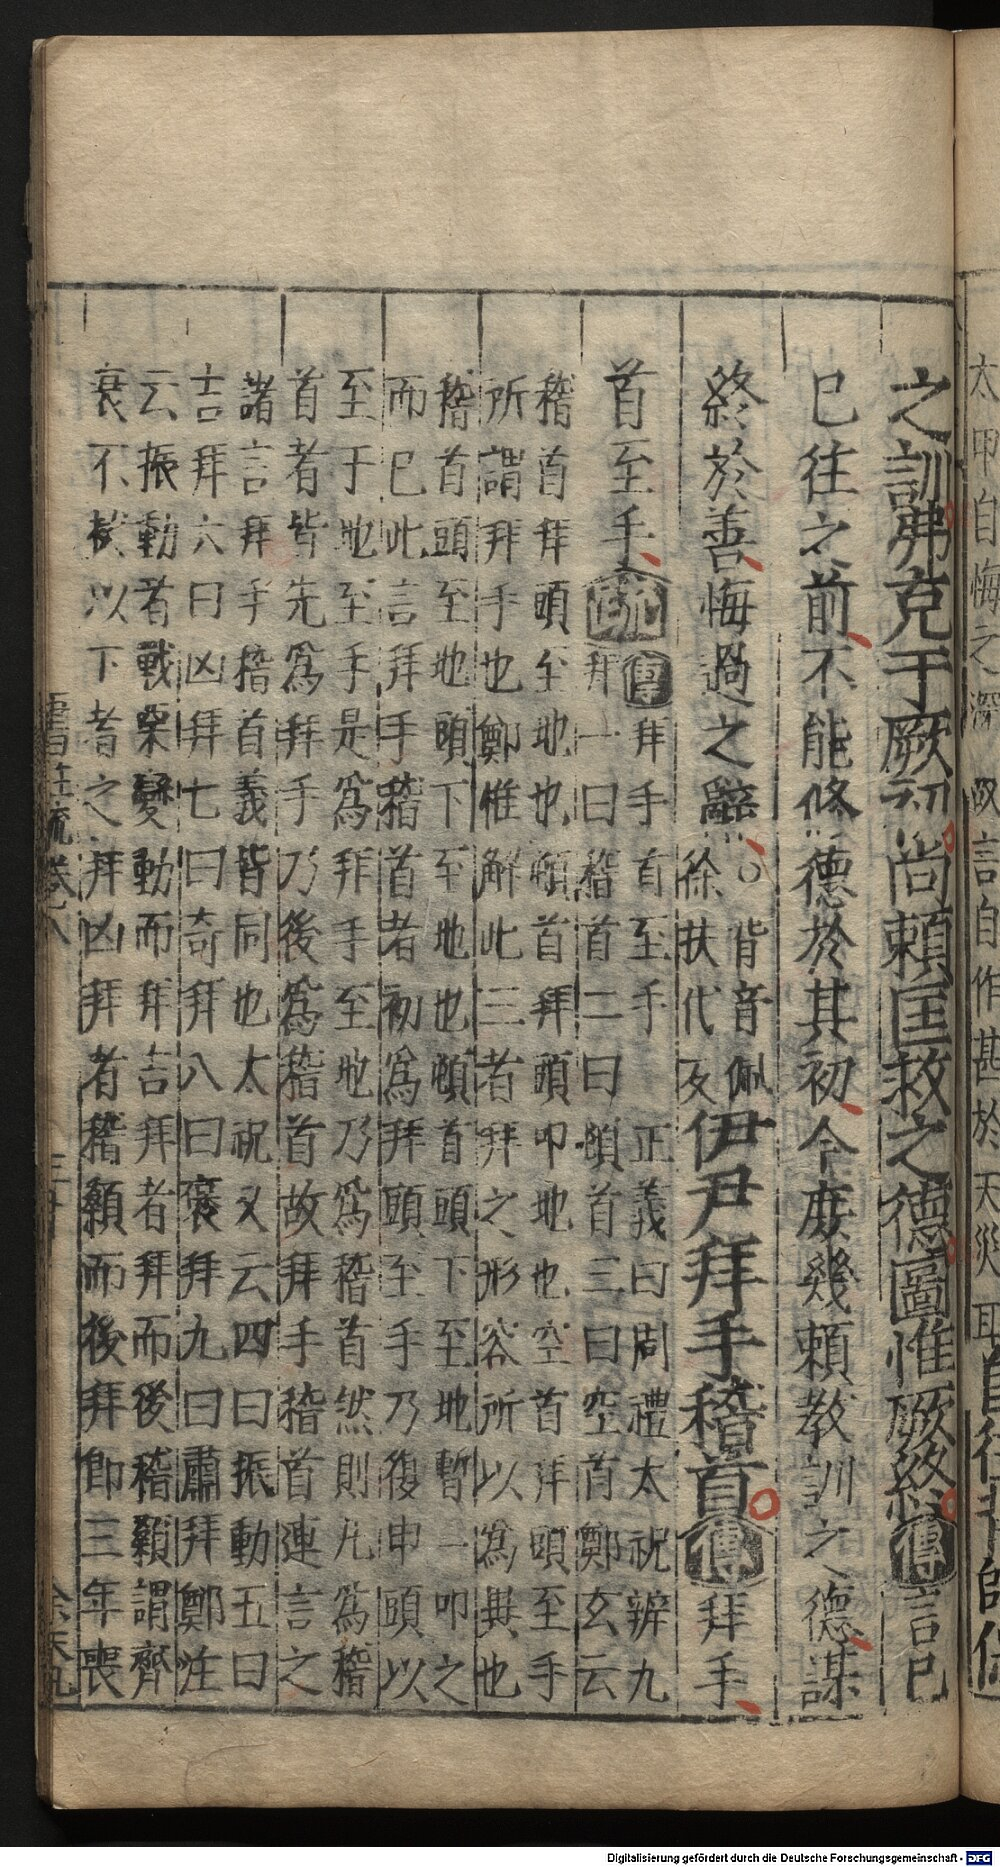 太甲自悔之深
言自作甚於天災
之訓弗克于厥初尚賴匡救之德圖惟厥終傳言已
已往之前不能修德於其初今庶幾賴教訓之德謀
終於善悔過之辭○背音佩
徐扶代反伊尹拜手稽首傳拜手
首至手疏傳拜手首至手 正義曰周禮太祝辨九
拜一曰稽首二曰頓首三曰空首鄭玄云
稽首拜頭至地也頓首拜頭叩地也空首拜頭至手
所謂拜手也鄭惟解此三者拜之形容所以為異也
稽首頭至地頭下至地也頓首頭下至地暫一叩之
而已此言拜手稽首者初為拜頭至手乃復申頭以
至于地至手是為拜手至地乃為稽首然則凡為稽
首者皆先為拜手乃後為稽首故拜手稽首連言之
諸言拜手稽首義皆同也太祝又云四曰振動五曰
吉拜六曰凶拜七曰奇拜八曰褒拜九曰肅拜鄭注
云振動者戰栗變動而拜吉拜者拜而後稽顙謂齊
衰不杖以下者之拜凶拜者稽顙而後拜即三年喪
書註疏卷八
Digitalisierung gefördert durch die Deutsche Forschungsgemeinschaft - DFG